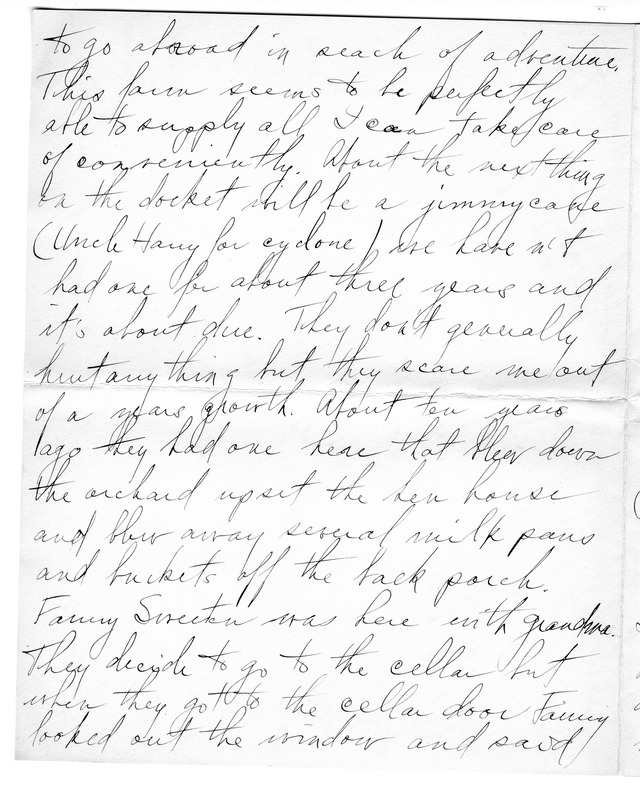 to go abroad in seach of adventure.
This farm seems to be perfectly
able to supply all I can take care
of conveniently. About the next thing
on the docket will be a jimmycane
(Uncle Harry for cyclone) we have n't
had one for about three years and
it's about due. They don't generally
hurt anything but they scare me out
of a years growth. About ten years
ago they had one here that blew down
the orchard upset the hen house
and blew away several milk pans
and buckets off the back porch.
Fanny was here with grandma.
They decide to go to the cellar but
when they got to the cellar door Fanny
looked out the window and said